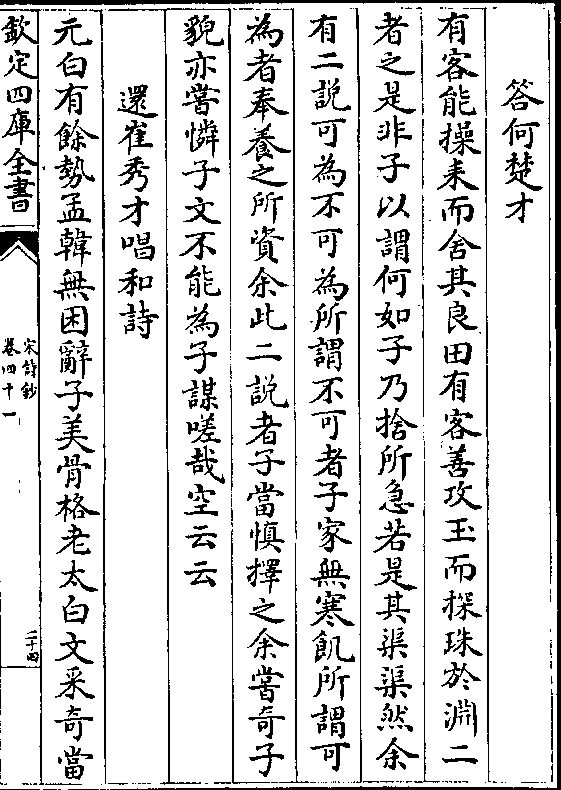 答何楚才
有客能操耒而舍其良田有客善攻玉而探珠於淵二
者之是非子以謂何如子乃捨所急若是其渠渠然余
有二説可為不可為所謂不可者子家無寒飢所謂可
為者奉養之所資余此二説者子當慎擇之余嘗奇子
貌亦嘗憐子文不能為子謀嗟哉空云云
還崔秀才唱和詩
元白有餘勢孟韓無困辭子美骨格老太白文采奇當
欽定四庫全書
宋詩鈔
卷四十一
二十四